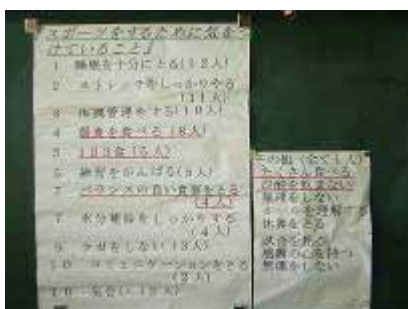 スポーツをするために気をつ
けていること』
1 睡眠を十分にとる(12人)
2 ストレッチをしっかりやる
(11人)
3 体調管理をする(10人)
4 朝食を食べる(8人)
5 1日3食(5人)
5 練習をがんばる(5人)
7 バランスの良い食事をとる
(4人)
7 水分補給をしっかりする
(4人)
9 ケガをしない(3人)
10 コミュニケーションをとる
(2人)
10 気合い(2人)
その他(全て1人)
たくさん食べる
無理をしない
ルールを理解する
休養をとる
感謝の心を持つ
無理をしない